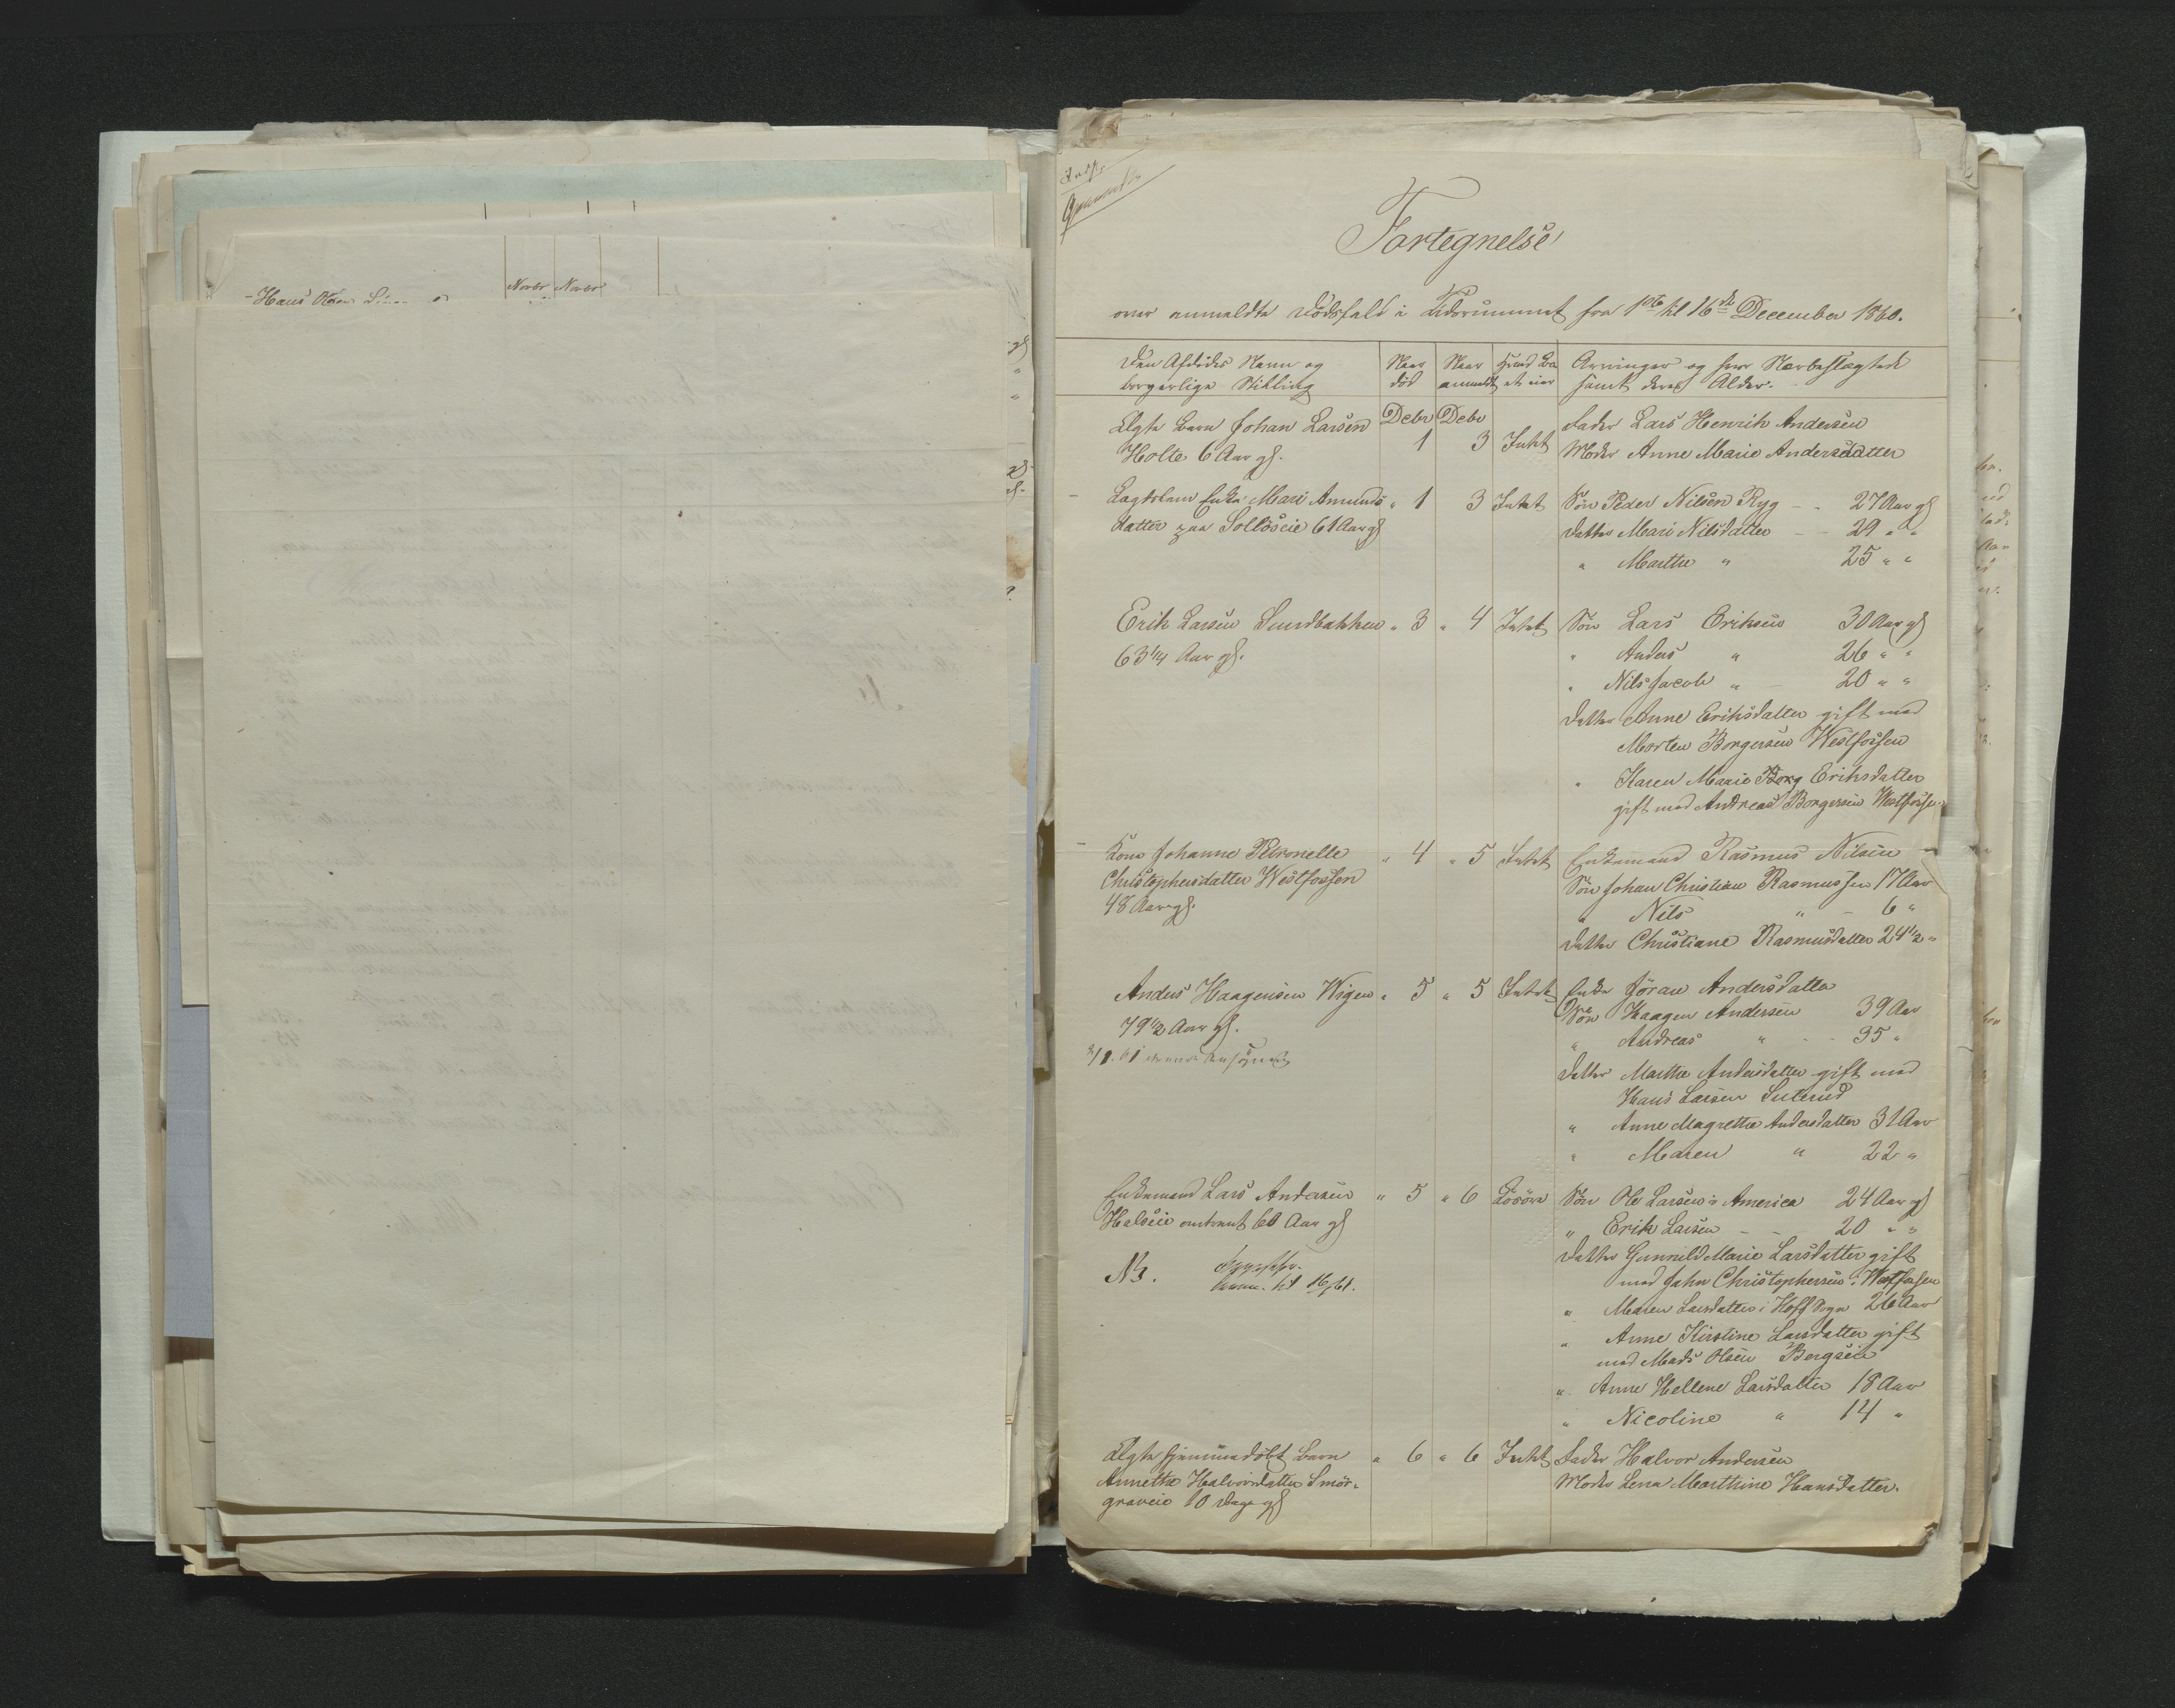 Hans Novbr Novbr
Fortegnelse
over anmeldte Dødsfald i Tidsrummet fra 1ste til 16de December 1860.
Den Afdødes Navn og borgerlige Stilling | Naar død | Naar anmeldt | Hvad Bo et eier | Arvinger og fror Nærbeslægtede samt deres Alder.
Debr Debr
Ægte Barn Johan Larsen Fader Lars Henrik Andersen
Holte 6 Aar gl. 1 3 Intet Moder Anne Marie Andersdatter
Lagdslem Enke Mari Amunds- " 1 3 Intet Søn Peder Nilsen Ryg - - 27 Aar gl
datter paa Solløseie 61 Aar gl Datter Mari Nilsdatter - - 29 " "
" Marthe " 25 " "
Erik Larsen Sundbakken " 3 " 4 Intet Søn Lars Eriksen 30 Aar gl
63 1/4 Aar gl. " Anders " 26 " "
" Nils Jacob " - 20 " "
Datter Anne Eriksdatter gift med
Morten Borgersen Westfossen
" Karen Marie Borg Eriksdatter
gift med Andreas Borgersen Westfossen
Kone Johanne Petronelle " 4 " 5 Intet Enkemand Rasmus Nilsen
Christophersdatter Westfossen Søn Johan Christian Rasmussen 17 Aar
48 Aar gl. " Nils " - 6 "
Datter Christiane Rasmusdatter 24 1/2 "
Anders Haagensen Wigen " 5 " 5 Intet Enke Jøran Andersdatter
79 1/2 Aar gl. Søn Haagen Andersen 39 Aar
" Andreas " - - 35 "
Datter Marthe Andersdatter gift med
Hans Larsen Suterud
" Anne Magrethe Andersdatter 31 Aar
" Maren " 22 "
Enkemand Lars Andersen " 5 " 6 Løsøre Søn Ole Larsen i America 24 Aar gl
Halseie omtrent 60 Aar gl " Erik Larsen - - 20 " "
Datter Gunnild Marie Larsdatter gift
NB. med John Christophersen i Westfossen
" Maren Larsdatter i Hoff Sogn 26 Aar
" Anne Kirstine Larsdatter gift
med Mads Olsen Bergseie
" Anne Hellene Larsdatter 18 Aar
" Nicoline " 14 "
Ægte hjemmedøbt Barn " 6 " 6 Intet Fader Halvor Andersen
Annette Halvorsdatter Smør- Moder Lena Marthine Hansdatter.
graveie 10 Dage gl